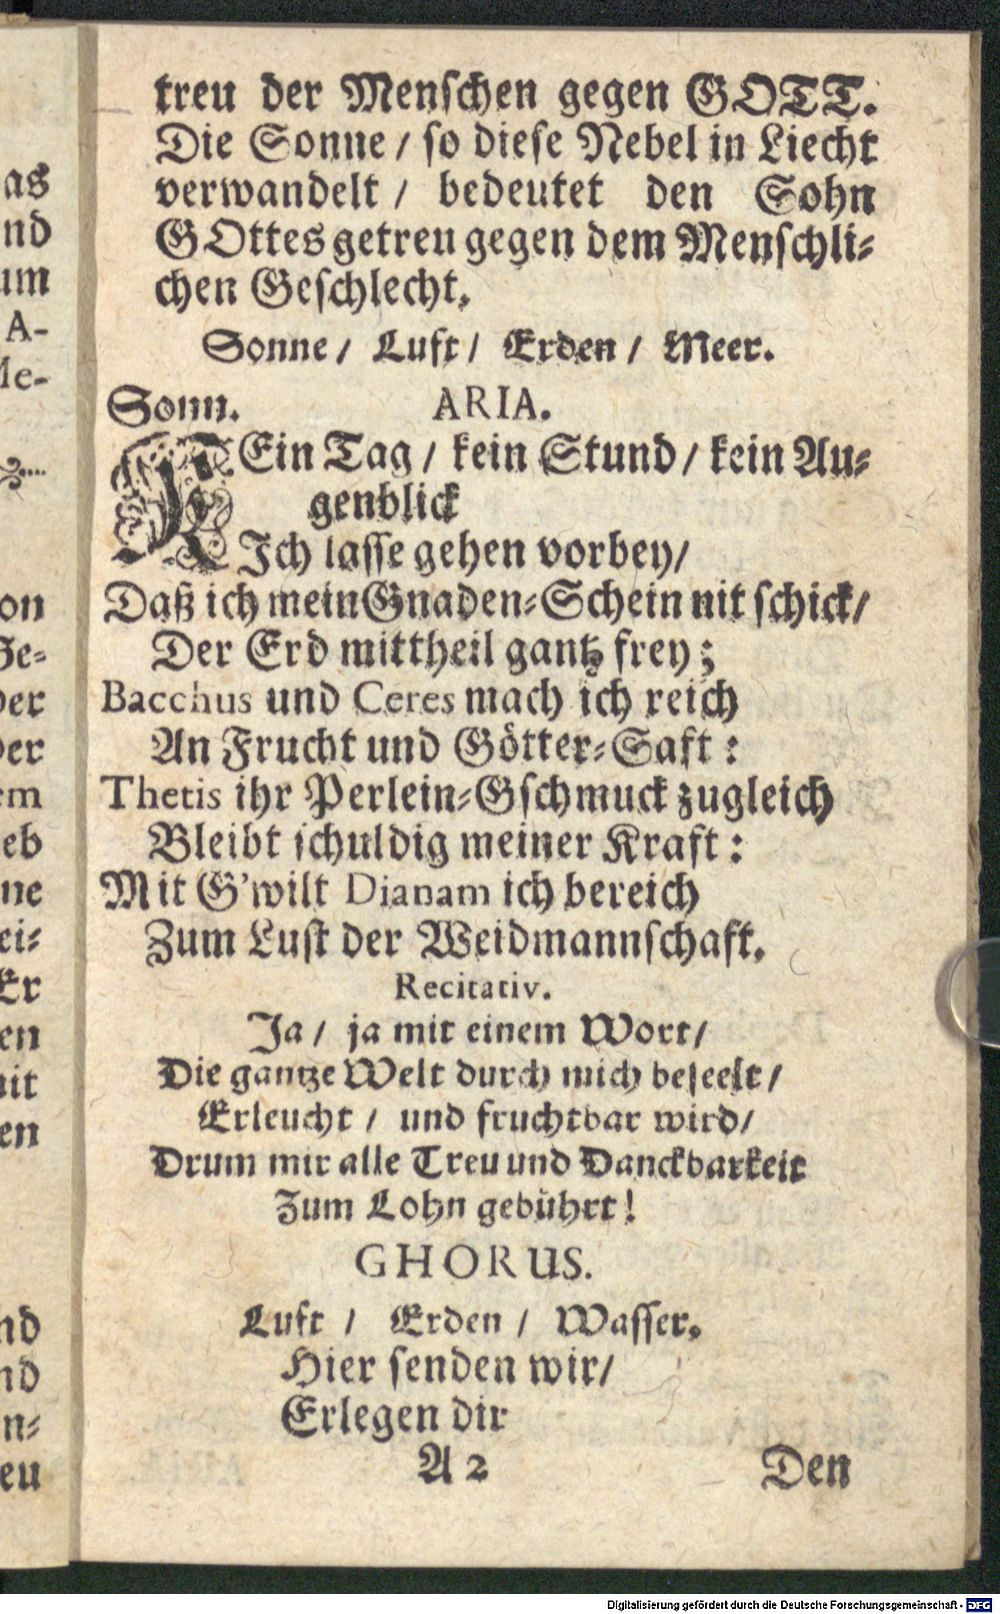 treu der Menschen gegen GOTT.
Die Sonne / so diese Nebel in Liecht
verwandelt / bedeutet den Sohn
GOttes getreu gegen dem Menschli-
chen Geschlecht.
Sonne / Luft / Erden / Meer.
Sonn. ARIA.
KEin Tag / kein Stund / kein Au-
genblick
Ich lasse gehen vorbey /
Daß ich mein Gnaden-Schein nit schick /
Der Erd mittheil gantz frey ;
Bacchus und Ceres mach ich reich
An Frucht und Götter-Saft :
Thetis ihr Perlein-Gschmuck zugleich
Bleibt schuldig meiner Kraft :
Mit G'wilt Dianam ich bereich
Zum Lust der Weidmannschaft.
Recitativ.
Ja / ja mit einem Wort /
Die gantze Welt durch mich beseelt /
Erleucht / und fruchtbar wird /
Drum mir alle Treu und Danckbarkeit
Zum Lohn gebührt !
GHORUS.
Luft / Erden / Wasser.
Hier senden wir /
Erlegen dir
A 2 Den
as
nd
um
A-
Me-
on
Ge-
der
der
em
eb
ne
ei-
Er
en
nit
en
nd
nd
n-
eu
Digitalisierung gefördert durch die Deutsche Forschungsgemeinschaft - DFG